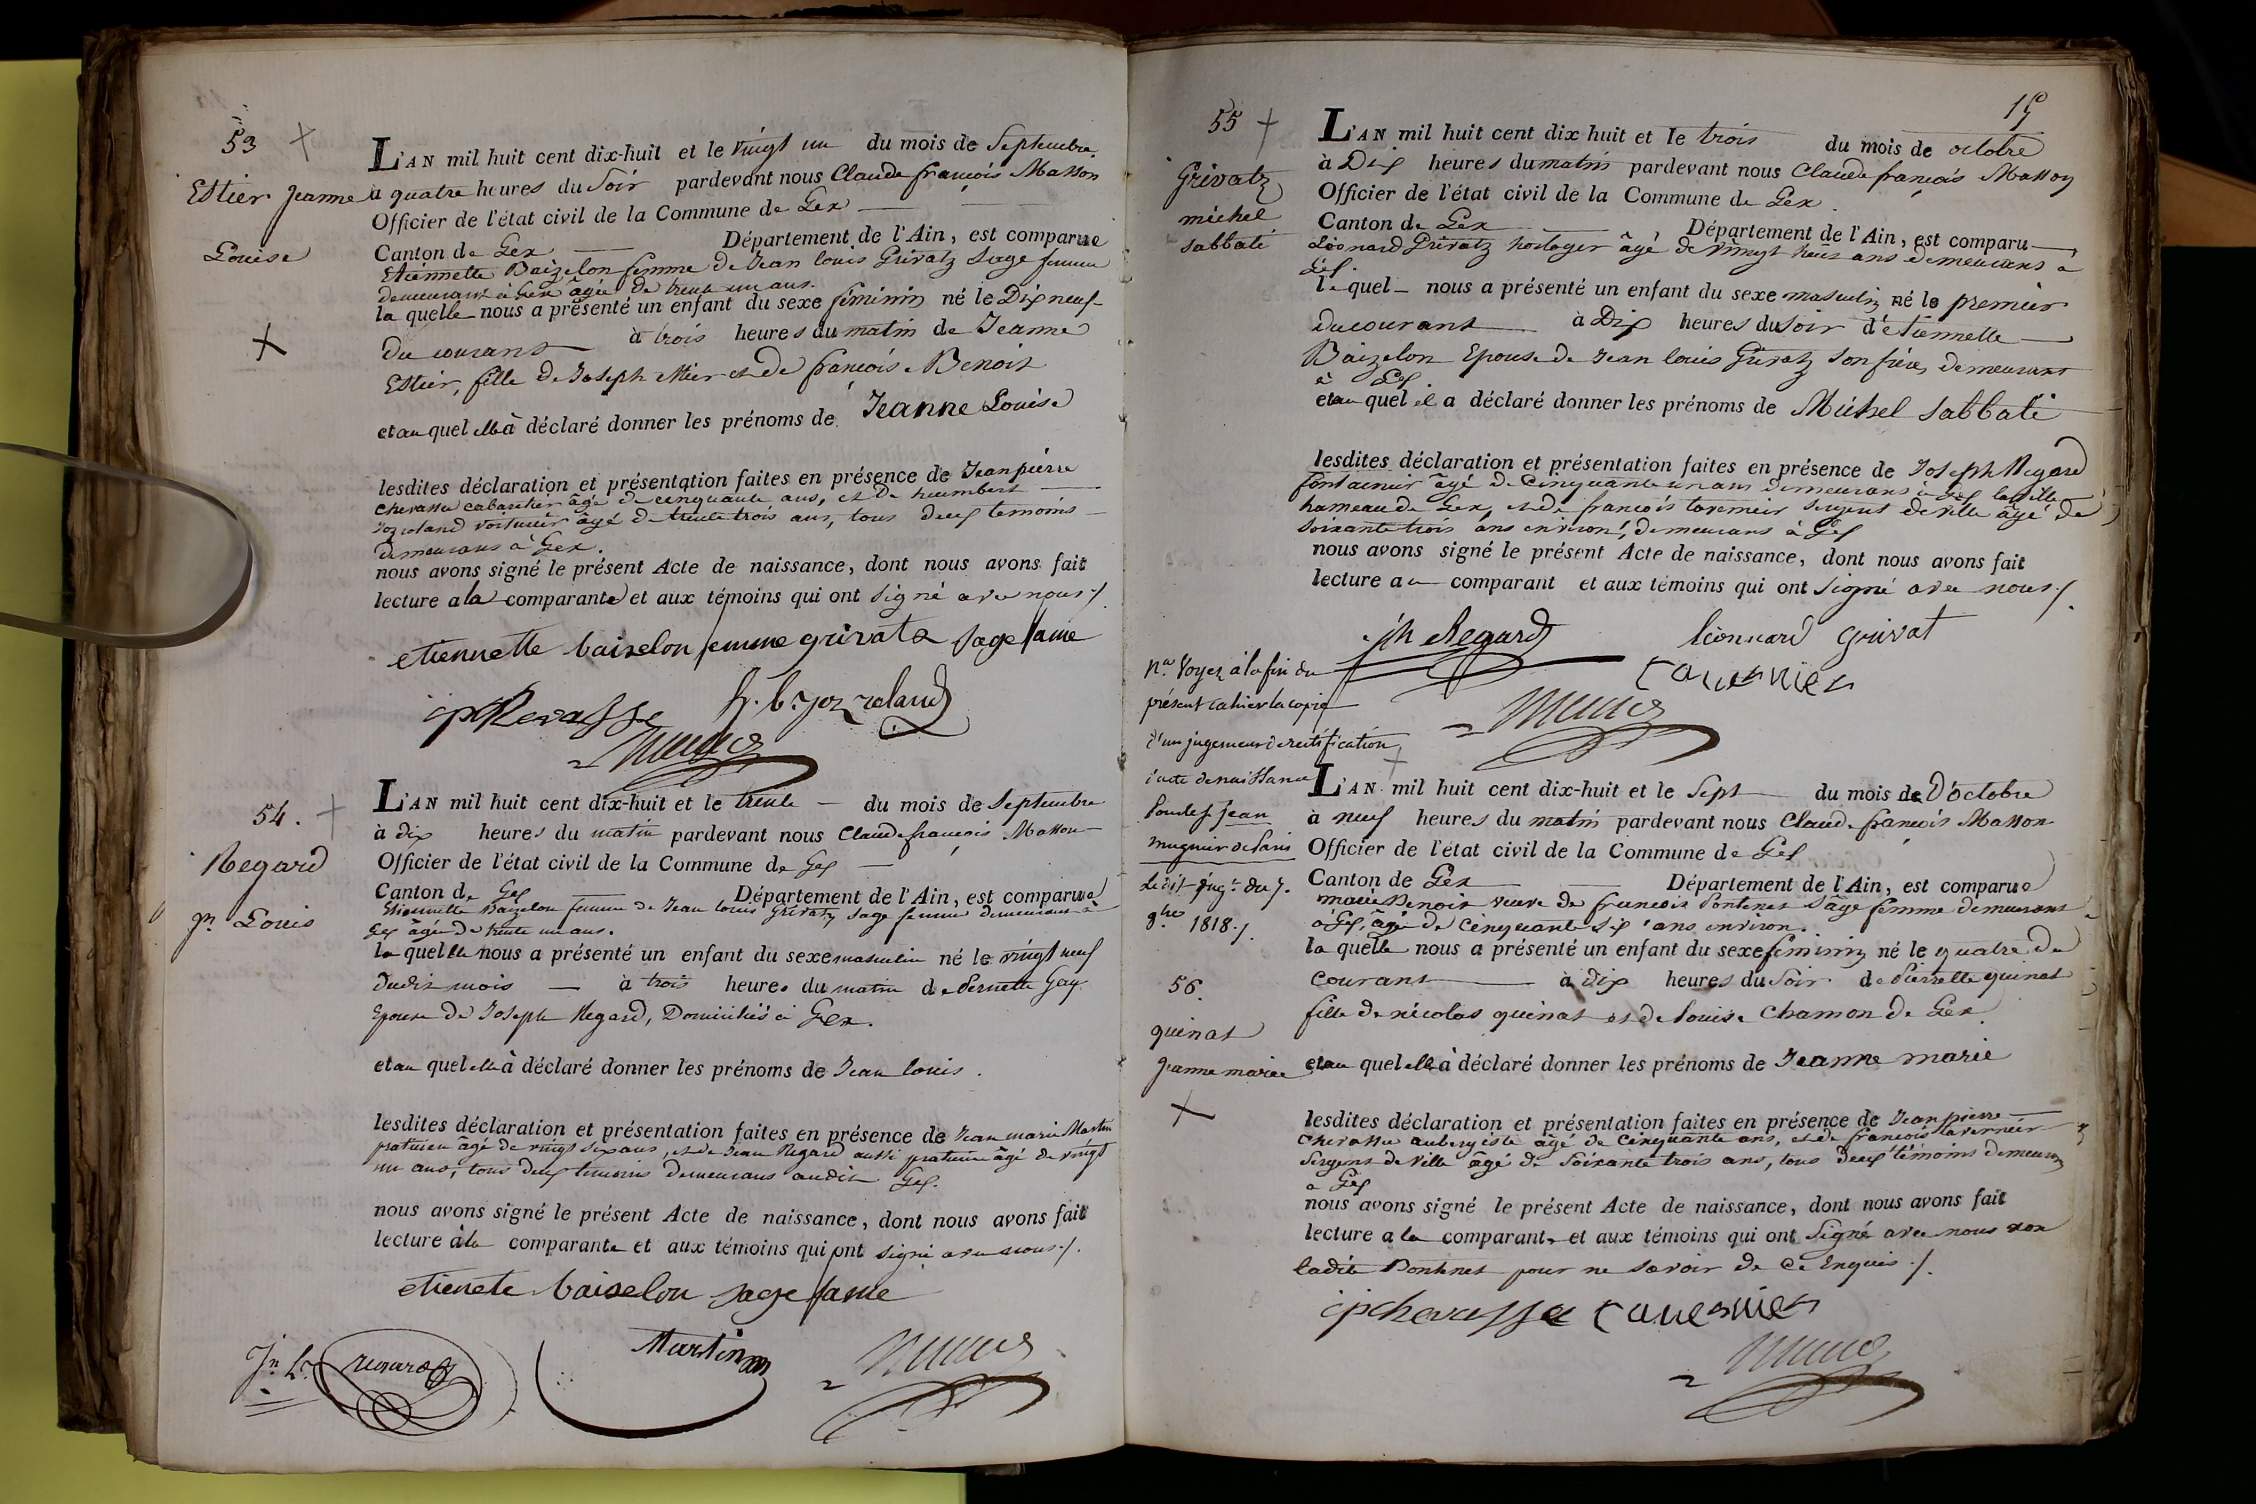 53
Estier Jeanne
Louise
L'AN mil huit cent dix-huit et le vingt un du mois de Septembre
à quatre heures du Soir pardevant nous Claude françois Masson
Officier de l'état civil de la Commune de Gex
Canton de Gex Département de l'Ain, est comparue
Etiennette Baizelon femme de Jean louis Grivatz Sage femme
demeurant à Gex âgée de trente un ans.
la quelle nous a présenté un enfant du sexe féminin né le Dix neuf
du courant à trois heures du matin de Jeanne
Estier, fille de Joseph Estier et de françois Benoit
et au quel elle à déclaré donner les prénoms de Jeanne Louise
lesdites déclaration et présentation faites en présence de Jean pierre
Chevasse cabaretier âgé de cinquante ans, et de humbert
Jozroland voiturier âgé de trente trois ans, tous deux temoins
demeurans à Gex.
nous avons signé le présent Acte de naissance, dont nous avons fait
lecture a la comparante et aux témoins qui ont signé avec nous ./.
etiennette baizelon femme grivatz sage fame
jp Chevasse h. b. joz roland
54.
Regard
Jn. Louis
L'AN mil huit cent dix-huit et le trente du mois de Septembre
à dix heures du matin pardevant nous Claude françois Masson
Officier de l'état civil de la Commune de Gex
Canton de Gex Département de l'Ain, est comparue
Etiennette Baizelon femme de Jean louis Grivatz sage femme demeurant à
Gex âgée de trente un ans.
la quelle nous a présenté un enfant du sexe masculin né le vingt neuf
dudit mois à trois heures du matin de Pernette Gay
Epouse de Joseph Regard, Domiciliés à Gex.
et au quel elle à déclaré donner les prénoms de Jean louis.
lesdites déclaration et présentation faites en présence de Jean marie Martin
praticien âgé de vingt six ans, et de Jean Regard aussi praticien âgé de vingt
un ans, tous deux temoins demeurans audit Gex.
nous avons signé le présent Acte de naissance, dont nous avons fait
lecture à la comparante et aux témoins qui ont signé avec nous ./.
etienete baiselon sage fame
Jn. L. regard Martin
15
55
Grivatz
michel
sabbati
L'AN mil huit cent dix huit et le trois du mois de octobre
à Dix heures du matin pardevant nous Claude françois Masson
Officier de l'état civil de la Commune de Gex
Canton de Gex Département de l'Ain, est comparu
Léonard Grivatz horloger âgé de vingt neuf ans demeurans à
Gex.
le quel nous a présenté un enfant du sexe masculin né le premier
du courant à Dix heures du soir d'étiennette
Baizelon Epouse de Jean louis Grivatz son frère, demeurant
à Gex.
et au quel il a déclaré donner les prénoms de Michel sabbati
lesdites déclaration et présentation faites en présence de Joseph Regard
fontainier âgé de cinquante un ans demeurans à
hameau de Gex, et de francois tavernier sergent de ville âgé de
soixante trois ans environ, demeurans à Gex
nous avons signé le présent Acte de naissance, dont nous avons fait
lecture au comparant et aux témoins qui ont signé avec nous ./.
jh Regard léonnard grivat
tavernier
na. Voyez à la fin du
présent cahier la copie
d'un jugement de rectification
d'acte de naissance
Pour les Jean
mugnier de Paris
Le dit jugt. du 7.
9bre 1818 ./.
56.
quinat
Jeanne marie
L'AN mil huit cent dix-huit et le Sept du mois de D'octobre
à neuf heures du matin pardevant nous Claude françois Masson
Officier de l'état civil de la Commune de Gex
Canton de Gex Département de l'Ain, est comparue
marie Benoit veuve de francois Pontenet sage femme demeurant
à Gex, âgé de cinquante six ans environ.
la quelle nous a présenté un enfant du sexe féminin né le quatre du
courant à dix heures du Soir de Pierrette quinat
fille de nicolas quinat et de louise Chamon de Gex
et au quel elle à déclaré donner les prénoms de Jeanne marie
lesdites déclaration et présentation faites en présence de Jean pierre
Chevasse aubergiste âgé de cinquante ans, et de francois tavernier
sergent de ville âgé de soixante trois ans, tous deux témoins demeurans
à Gex
nous avons signé le présent Acte de naissance, dont nous avons fait
lecture a la comparante et aux témoins qui ont signé avec nous non
ladite Pontenet pour ne savoir de ce Enquis ./.
jp chevasse tavernier